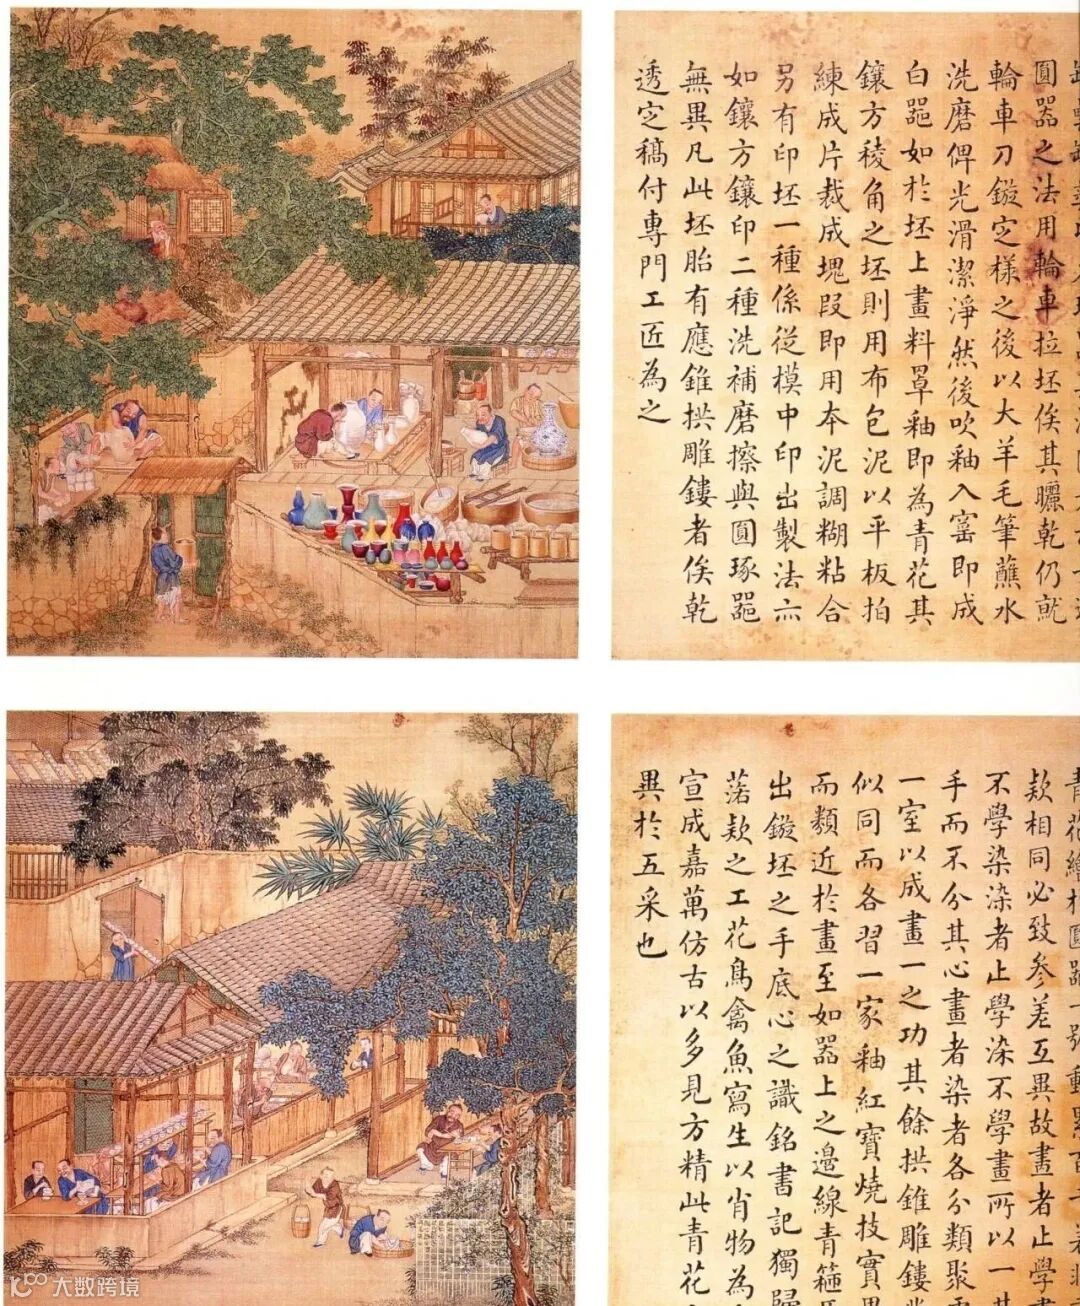 圓器之法用輪車拉坯俟其曬乾仍就
輪車刀鏇定樣之後以大羊毛筆蘸水
洗磨俾光滑潔淨然後吹釉入窰即成
白器如於坯上畫料罩釉即為青花其
鑲方稜角之坯則用布包泥以平板拍
練成片裁成塊段即用本泥調糊粘合
另有印坯一種係從模中印出製法亦
如鑲方鑲印二種洗補磨擦與圓琢器
無異凡此坯胎有應錐拱雕鏤者俟乾
透定稿付專門工匠為之
款相同必致參差互異故畫者止學
不學染染者止學染不學畫所以一其
手而不分其心畫者染者各分類聚
一室以成畫一之功其餘拱錐雕鏤業
似同而各習一家釉紅寶燒技實異
而類近於畫至如器上之邊線青箍
出鏇坯之手底心之識銘書記獨歸
落款之工花鳥禽魚寫生以肖物為
宣成嘉萬仿古以多見方精此青花
異於五采也
大数跨境